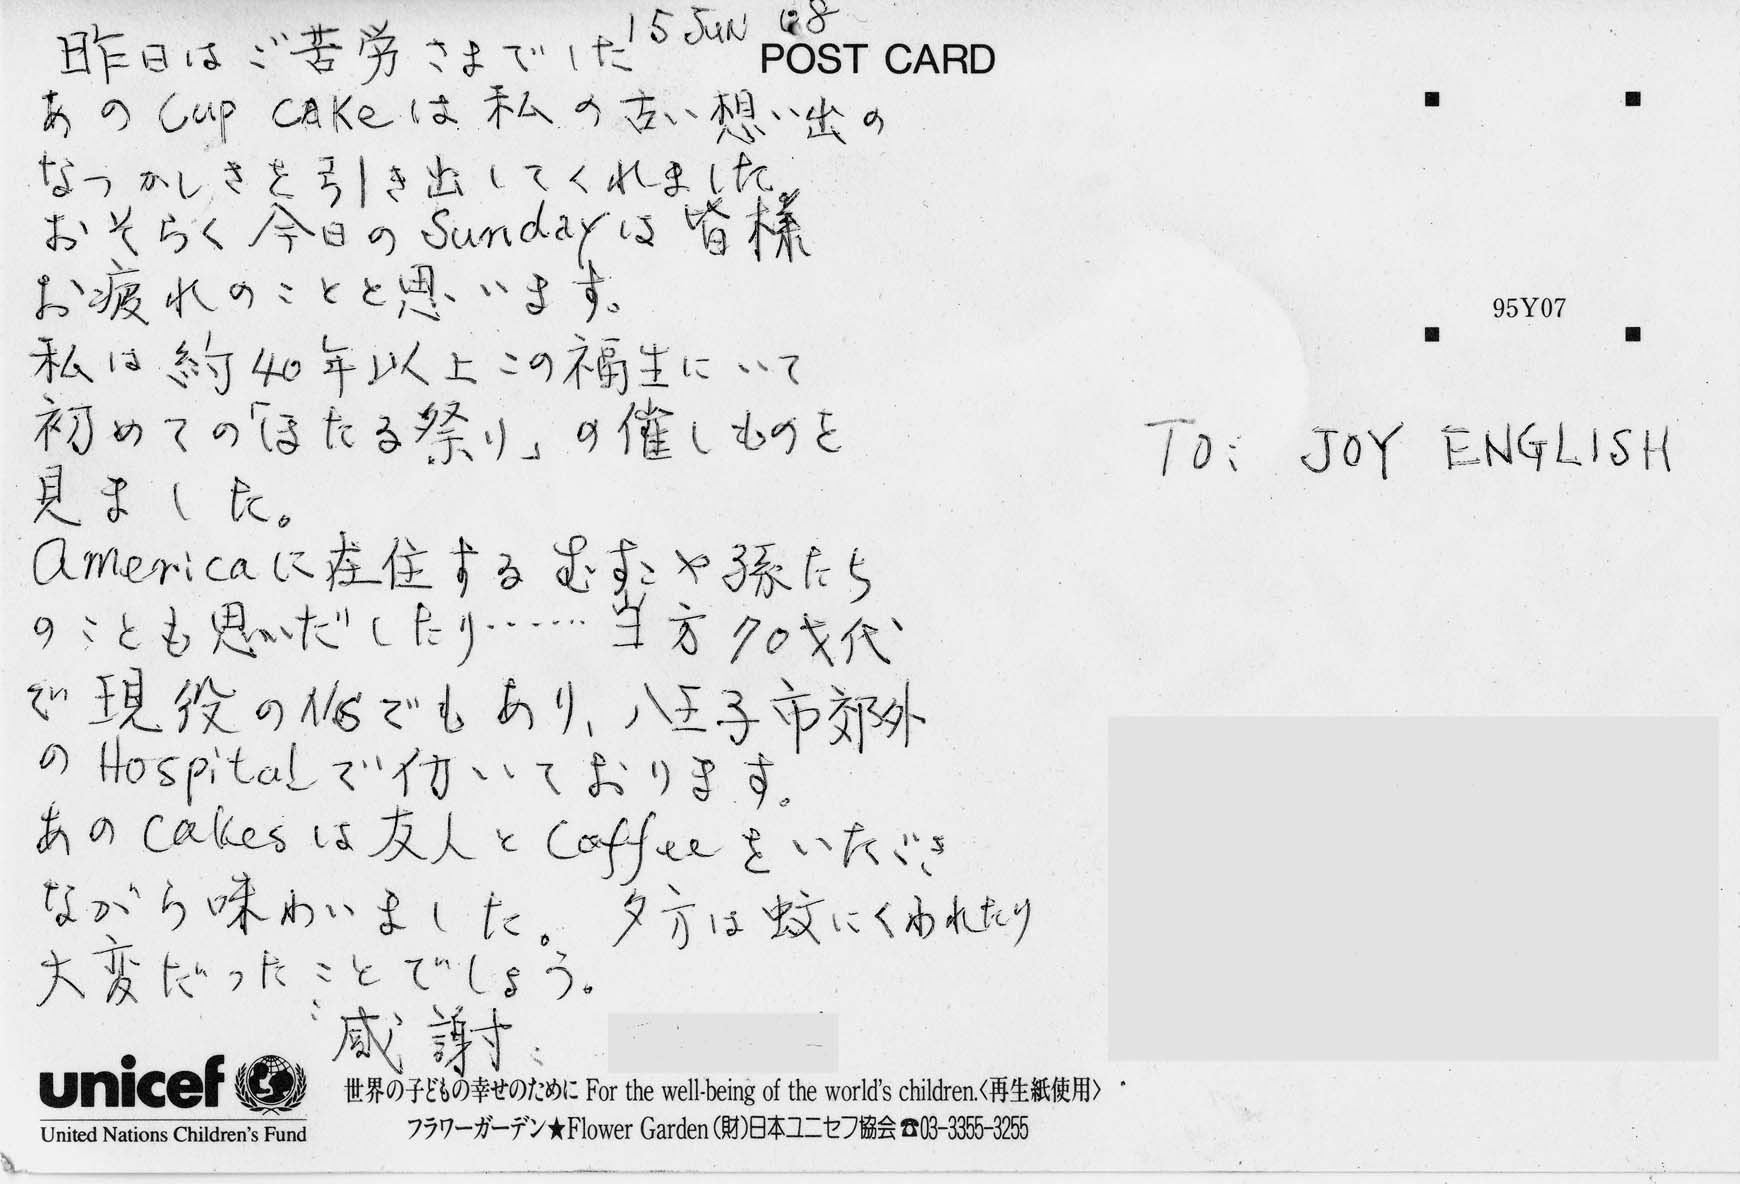 15 JUN 08
POST CARD
昨日はご苦労さまでした
あのCup CAKeは私の古い想い出の
なつかしさを引き出してくれました。
おそらく今日のSundayは皆様
お疲れのことと思います。
私は約40年以上この福生にいて
初めての「ほたる祭り」の催しものを
見ました。
Americaに在住するむすこや孫たち
のことも思いだしたり……当方70才代
で現役の
でもあり、八王子市郊外
のHospitalで仂いております。
あのcakesは友人とCoffeeをいただき
ながら味わいました。 夕方は蚊にくわれたり
大変だったことでしょう。
感謝
95Y07
TO: JOY ENGLISH
unicef
United Nations Children's Fund
世界の子どもの幸せのために For the well-being of the world's children.〈再生紙使用〉
フラワーガーデン★Flower Garden (財)日本ユニセフ協会☎03-3355-3255